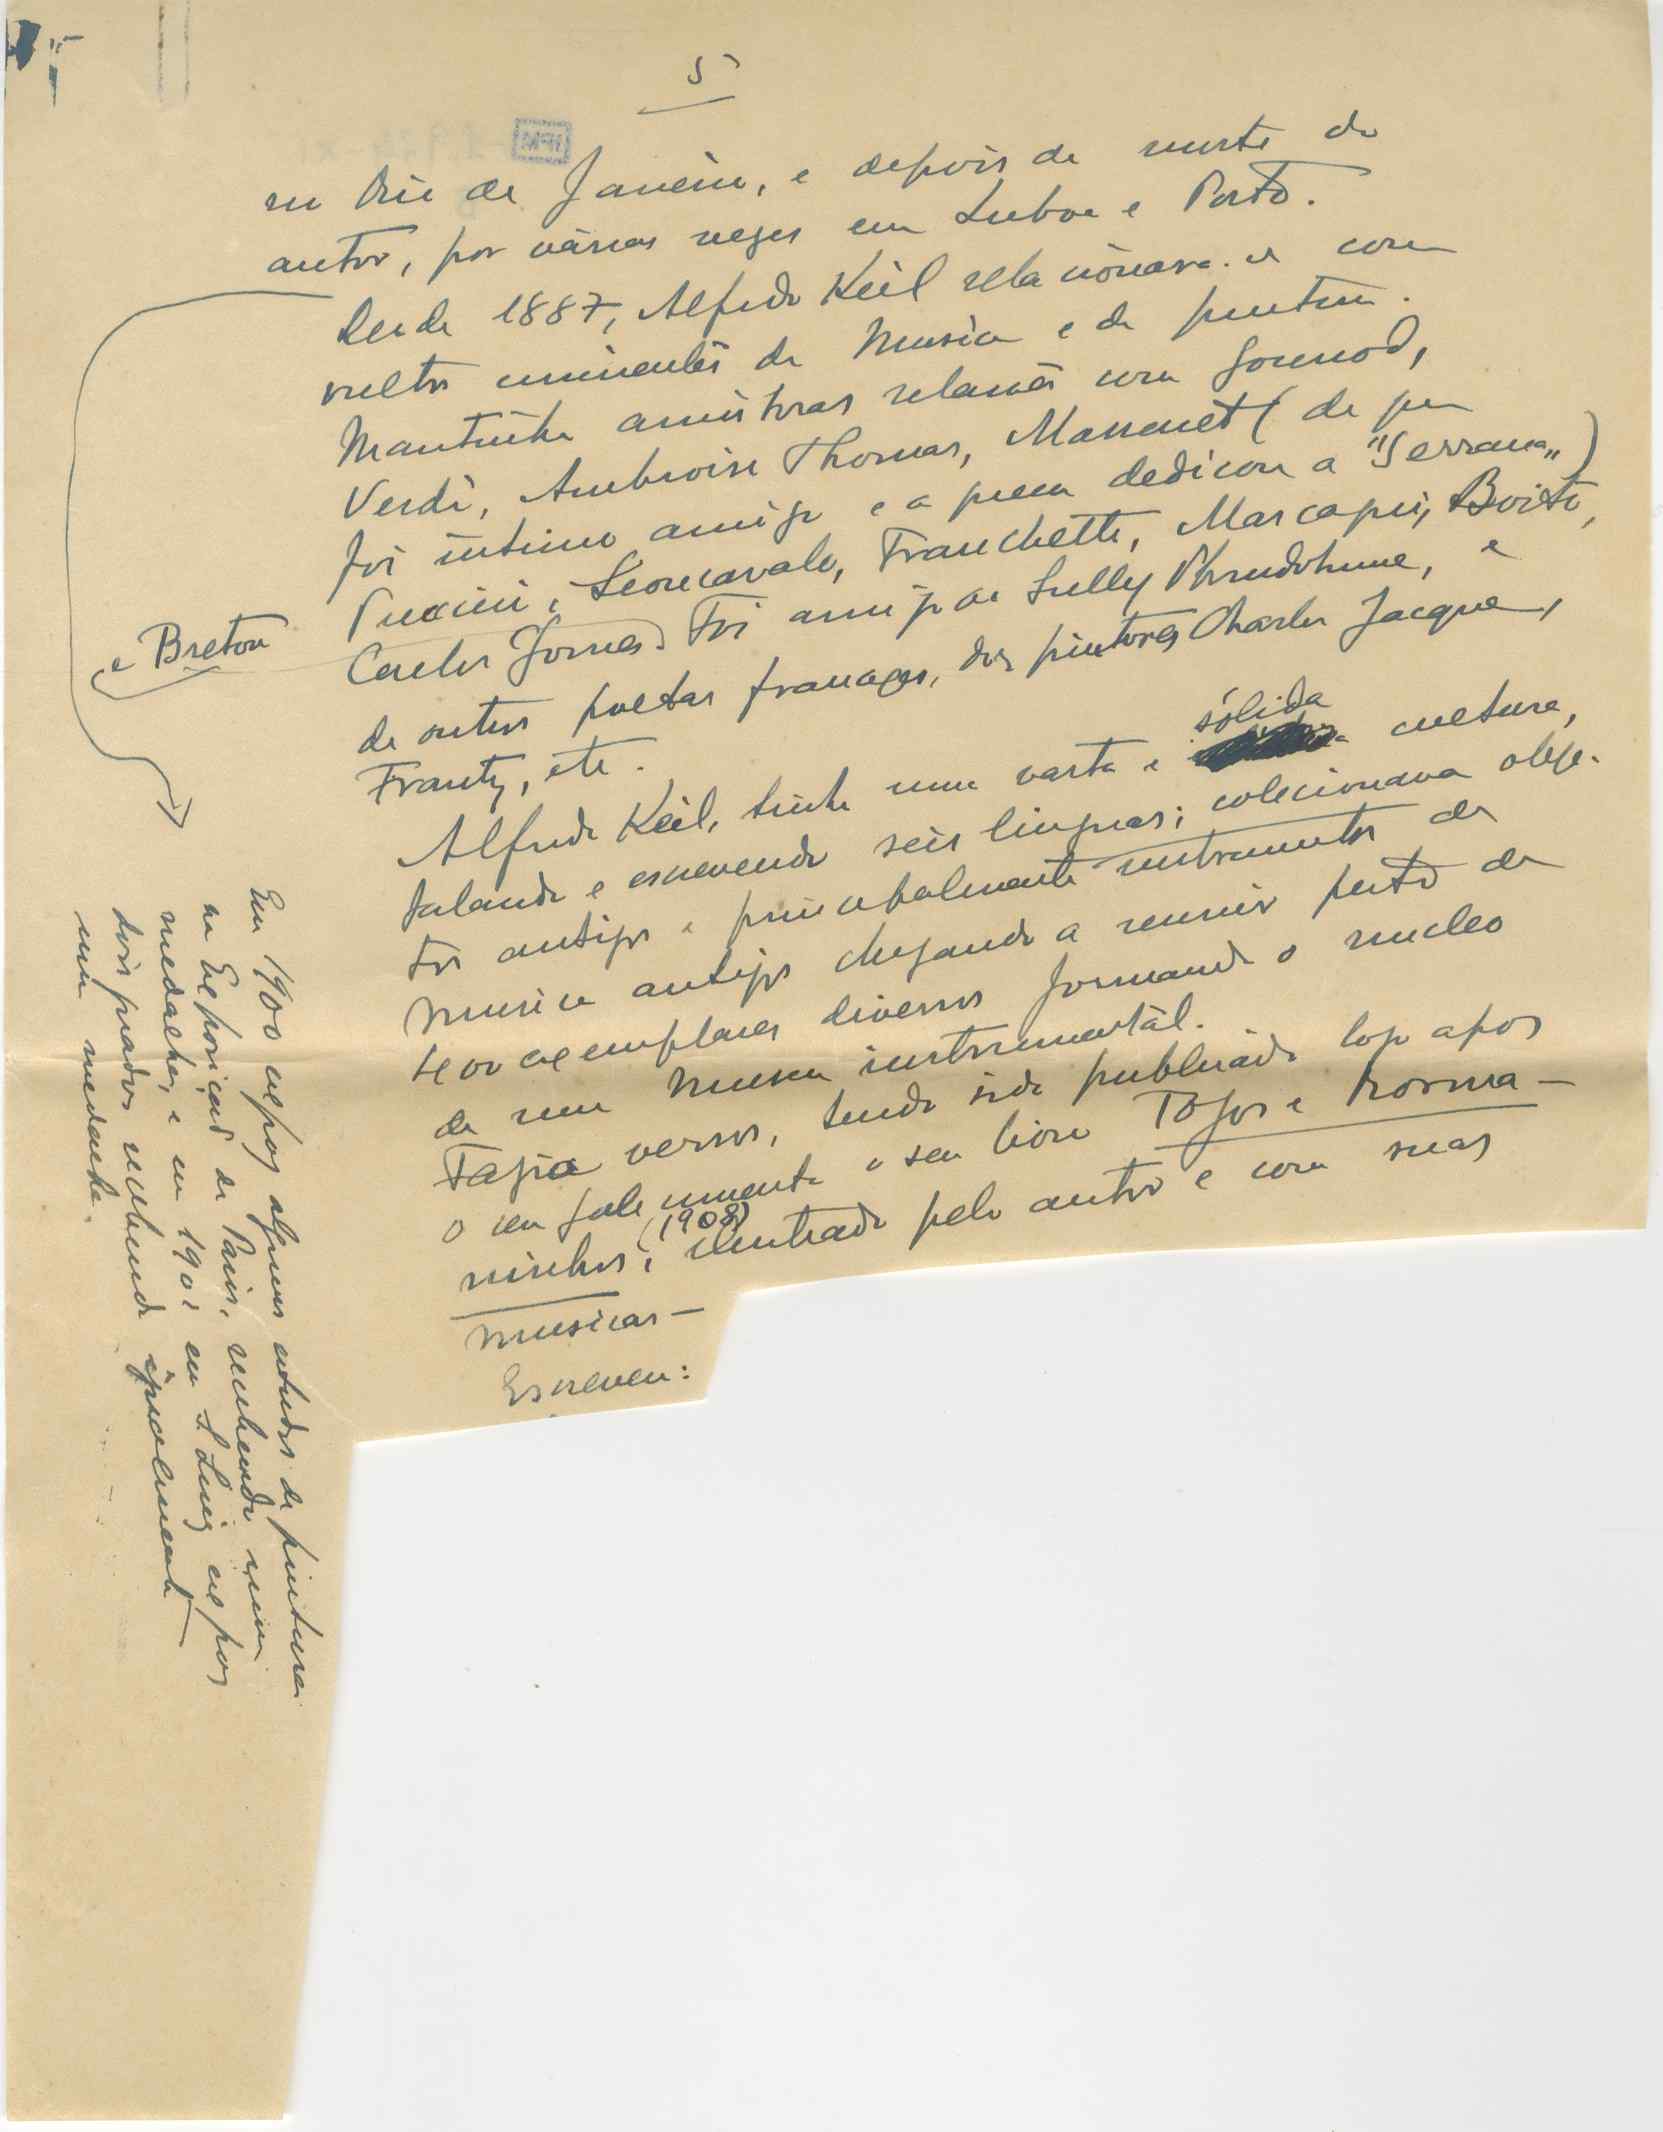 5
no Rio de Janeiro, e depois da morte do
autor, por várias vezes em Lisboa e Porto.
Desde 1887, Alfredo Keil relacionara-se com
vultos eminentes da Musica e da pintura.
Mantinha amistosas relações com Gounod,
Verdi, Ambroise Thomas, Massenet (de quem
foi intimo amigo e a quem dedicou a "Serrana")
Puccini, Leoncavalo, Franchetti, Mascagni, Boito,
Carlos Gomes. Foi amigo de Sully Prudohme, e
e Breton
de outros poetas franceses, dos pintores Charles Jacque,
Frantz, etc.
sólida
Alfredo Keil, tinha uma vasta e cultura,
falando e escrevendo seis linguas; colecionava obje-
tos antigos e principalmente instrumentos de
musica antigos chegando a reunir perto de
400 exemplares diversos formando o nucleo
de um Museu instrumental.
Fazia versos, tendo sido publicado logo após
o seu falecimento o seu livro Tojos e Rosma-
(1908)
ninhos, ilustrado pelo autor e com suas
musicas —
Escreveu:
Em 1900 expoz alguns estudos de pintura
na Exposição de Paris, recebendo uma
medalha, e em 1904 em S. Luiz expoz
dois quadros recebendo igualmente
uma medalha.